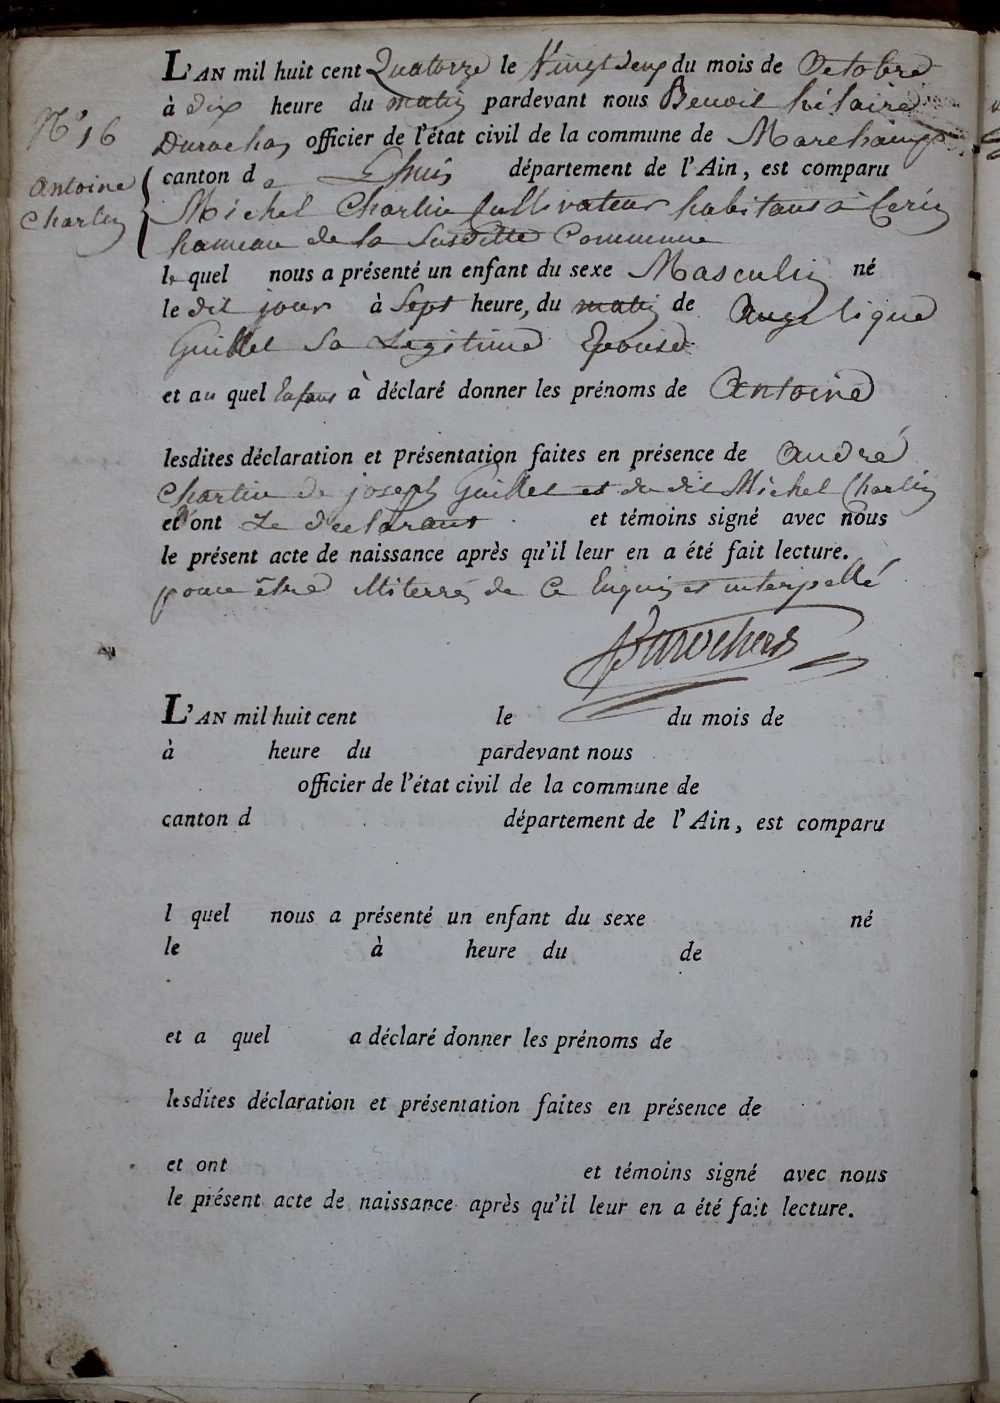 L'AN mil huit cent Quatorze le Vingt deux du mois de Octobre
à dix heure du matin pardevant nous Benoit hilaire
N° 16
Durochas officier de l'état civil de la commune de Marchamp
Antoine
Charlin
canton de Lhuis département de l'Ain, est comparu
Michel Charlin Cultivateur habitant à Cerin
hameau de la Susditte Commune
le quel nous a présenté un enfant du sexe Masculin né
le dit jour à Sept heure, du matin de Angelique
Guillet Sa Legitime Epouse
et au quel Enfant à déclaré donner les prénoms de Antoine
lesdites déclaration et présentation faites en présence de André
Charlin de joseph Guillet et du dit Michel Charlin
et ont Le declarant et témoins signé avec nous
le présent acte de naissance après qu'il leur en a été fait lecture.
pour être de ce Enquis et interpellé
Durochas
L'AN mil huit cent le du mois de
à heure du pardevant nous
officier de l'état civil de la commune de
canton d département de l'Ain, est comparu
l quel nous a présenté un enfant du sexe né
le à heure du de
et a quel a déclaré donner les prénoms de
lesdites déclaration et présentation faites en présence de
et ont et témoins signé avec nous
le présent acte de naissance après qu'il leur en a été fait lecture.